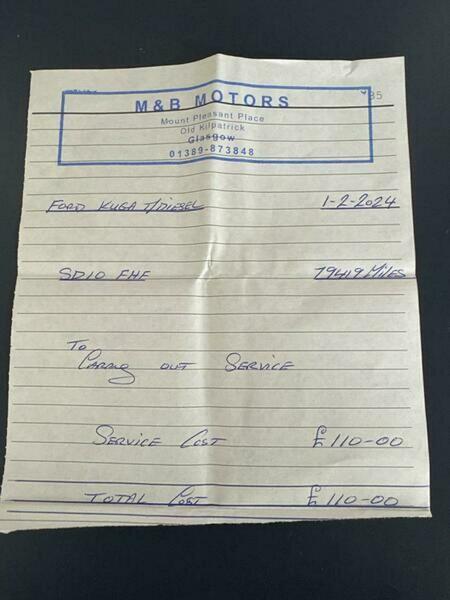 M&B MOTORS
Mount Pleasant Place
Old Kilpatrick
Glasgow
01389-873848
FORD KUGA T/DIESEL 1-2-2024
SD10 FHF 79419 MILES
TO
CARRING OUT SERVICE
SERVICE COST £110-00
TOTAL COST £110-00